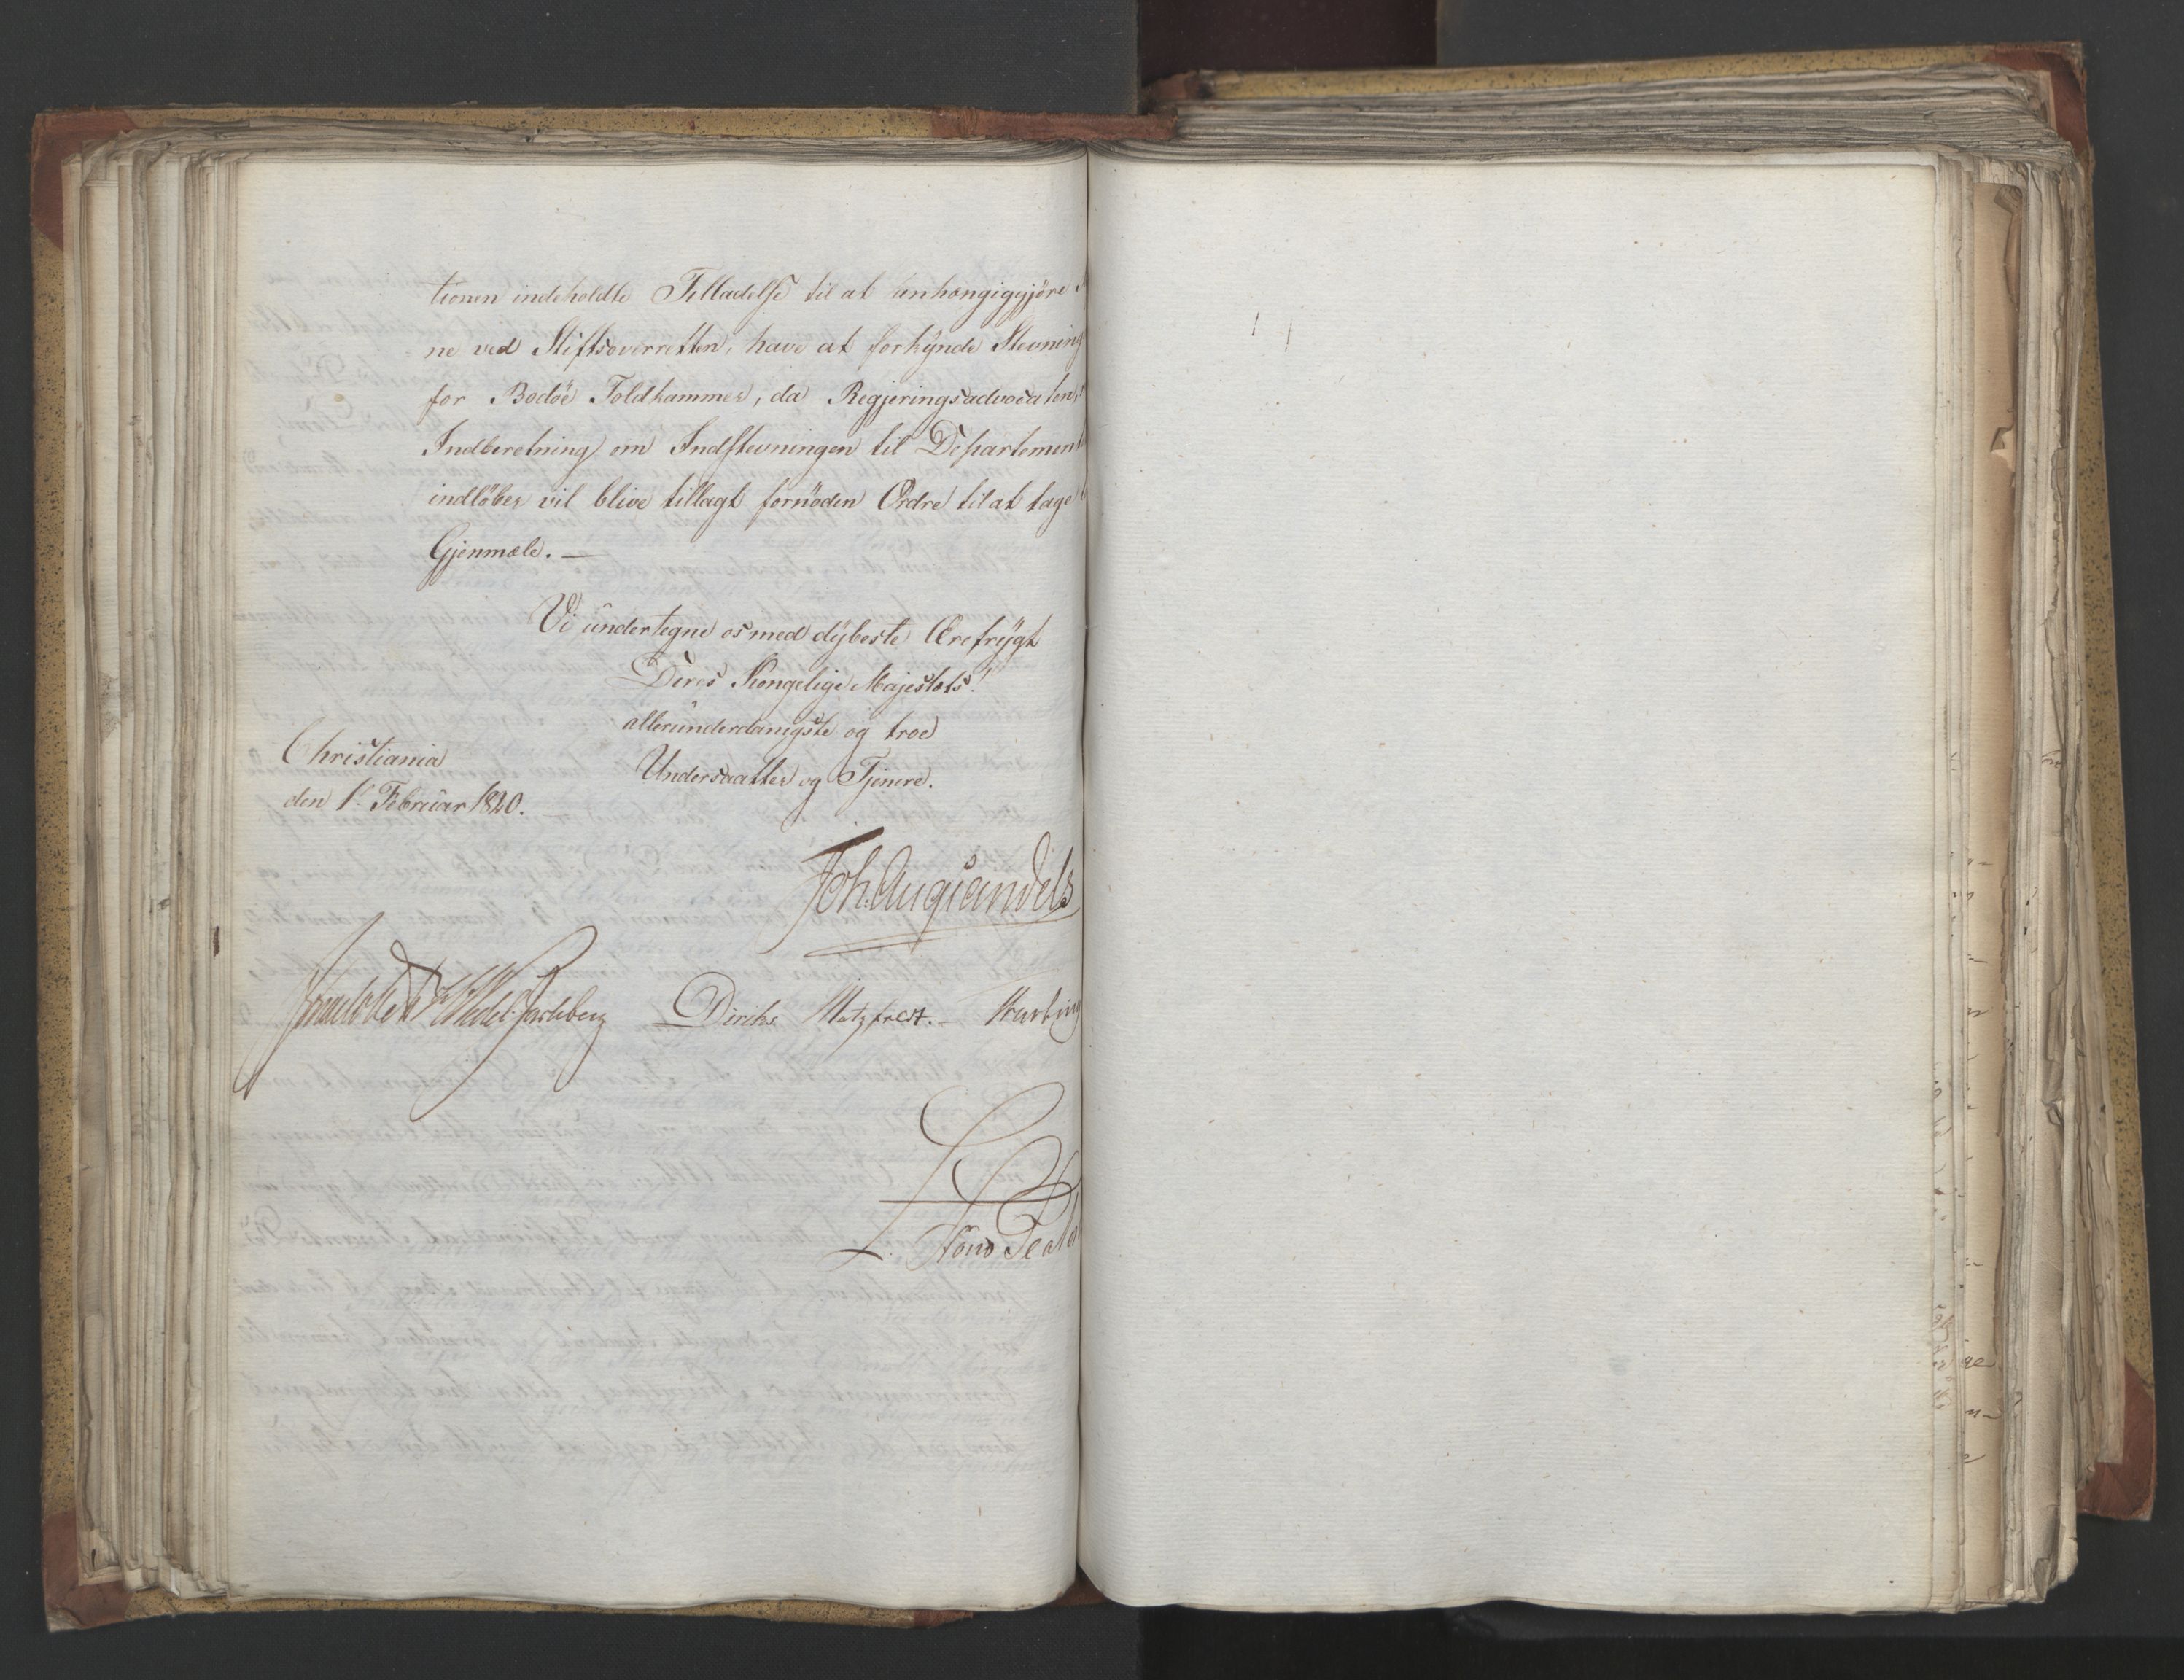 tionen indeholdte Tilladelse til at anhængiggjøre
ne ved Stiftsoverretten, have at forkynde Stevning
for Bodöe Toldkammer, da Regjeringsadvocaten,
Indberetning om Indstevningen til Departement
indløber vil blive tillagt fornöden Ordre til at tage
Gjenmæle. —
Vi undertegne os med dybeste Ærefrygt
Deres Kongelige Majestæts!
allerunderdanigste og troe
Undersaatter og Tjenere.
Christiania
den 1ste Februar 1820.
Joh. Aug Sandels
Wedel-Jarlsberg Diriks Motzfeldt. Krebting
L. Hovs Feald